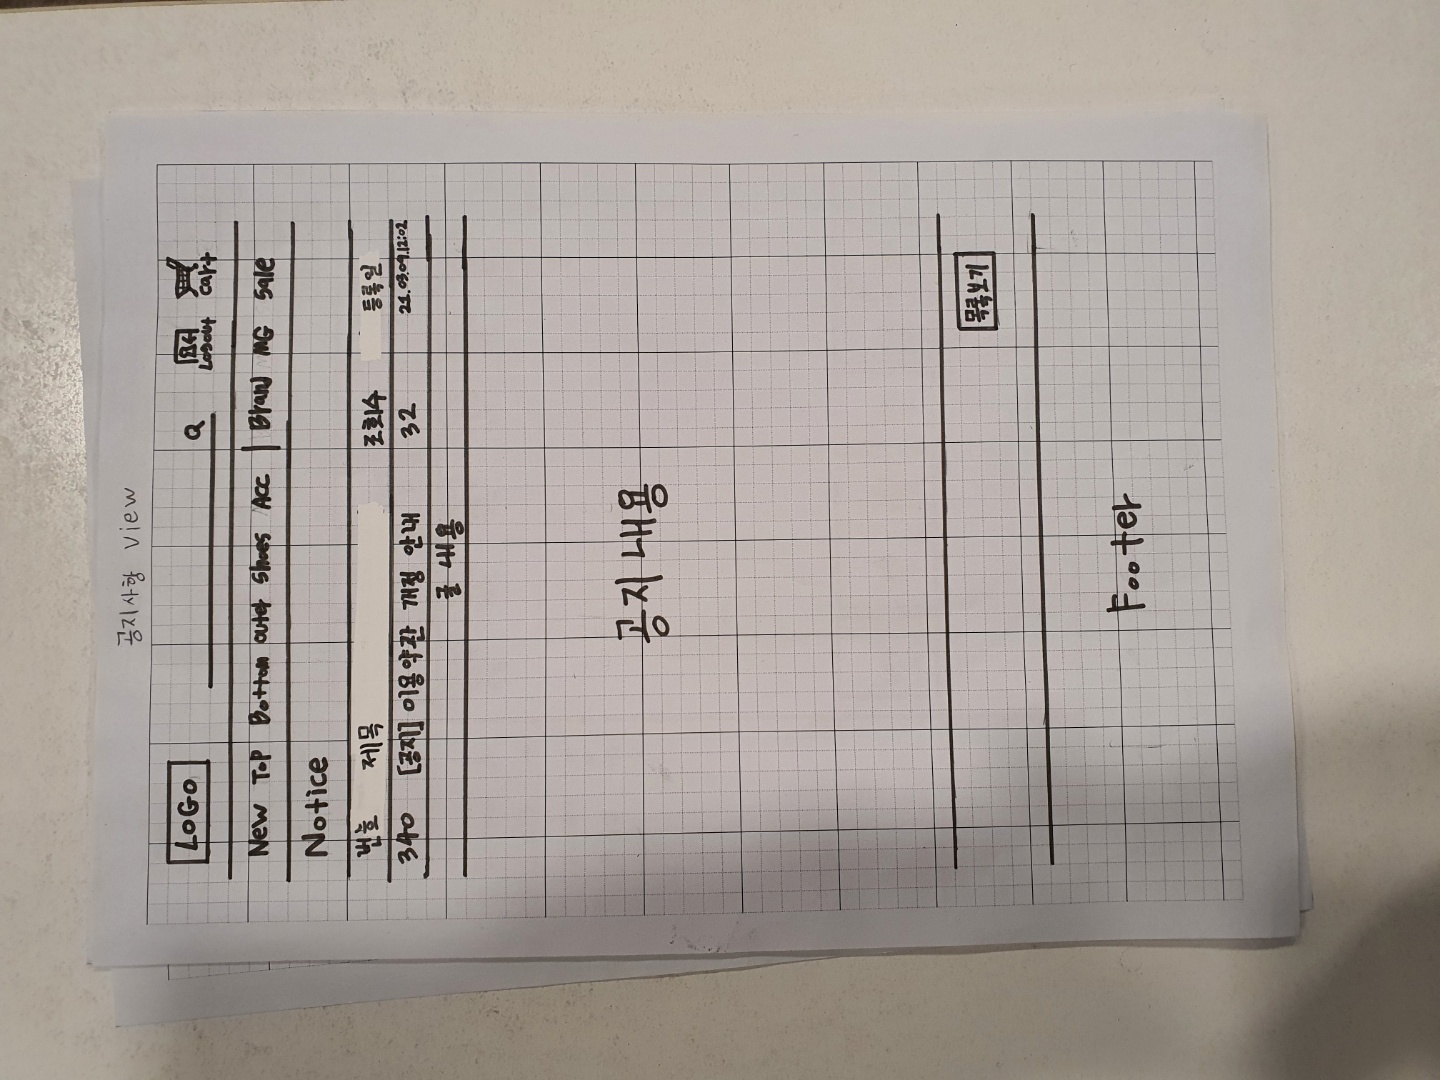 공지사항 view
LOGO Q Logout Cart
New Top Bottom outer Shoes Acc | Brand MG Sale
Notice
번호 제목 조회수 등록일
340 [공지] 이용약관 개정 안내 32 21.03.09.12:02
글 내용
공지 내용
목록보기
Footer